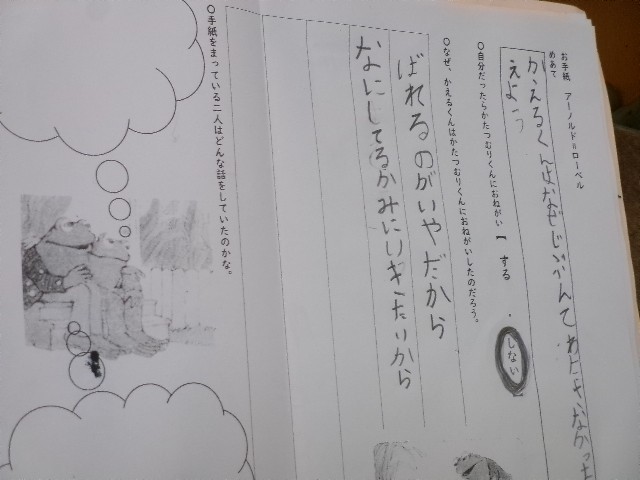 お手紙　アーノルド＝ローベル
めあて
かえるくんはなぜじぶんでわたさなかった
えよう
○自分だったらかたつむりくんにおねがい（ する ・ しない
○なぜ、かえるくんはかたつむりくんにおねがいしたのだろう。
ばれるのがいやだから
なにしてるかみにいきたいから
○手紙をまっている二人はどんな話をしていたのかな。